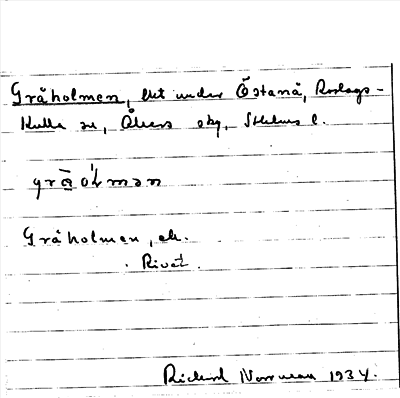 Gråholmen, lht under Östanå, Roslags-
Kulla sn, Åkers skg, Sthlms l.
Gråholmen, ek.
Rivet.
Rickard 1934.